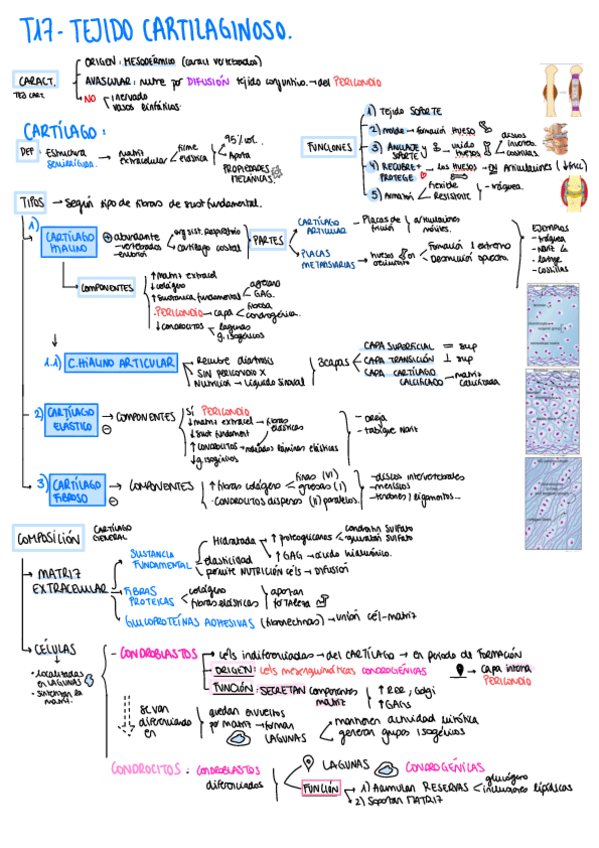 T.17 - TEJIDO CARTILAGINOSO.
CARACT.
TEJ CART.
ORIGEN: MESODÉRMICO (caract vertebrados)
AVASCULAR: nutre por DIFUSIÓN tejido conjuntivo → del PERICONDIO
NO inervado
vasos linfáticos.
CARTÍLAGO:
DEF - Estructura semirrígida → matriz extracelular
firme
elástica
95% vol.
Aporta PROPIEDADES MECÁNICAS
FUNCIONES
1) Tejido SOPORTE
2) molde → formación HUESO
3) ANCLAJE y SOPORTE → unido huesos
discos
costillas
4) RECUBRE + PROTEGE → los HUESOS → en Articulaciones (↓fricc)
5) Armazón
flexible
Resistente
- tráquea.
TIPOS → Según tipo de fibras de sust fundamental.
1) CARTÍLAGO HIALINO
+ abundante
- vertebrados
- embrión
org sist. respiratorio
cartílago costal
PARTES
CARTÍLAGO ARTICULAR - Placas de fricción
articulaciones móviles.
PLACAS METAFISARIAS → huesos en crecimiento
Formación 1 extremo
Destrucción opuesto
EJEMPLOS
- tráquea
- Nariz
- laringe
- costillas
COMPONENTES
↑ matriz extracel
↓ colágeno
↑ sustancia fundamental
agrecano
GAG.
· PERICONDIO → capa
fibrosa
condrogénica.
↓ CONDROCITOS
lagunas
g. isogénicos
1.1) C. HIALINO ARTICULAR
- Recubre diartrosis
- SIN PERICONDIO X
- Nutrición → líquido sinovial
3 capas
CAPA SUPERFICIAL = sup
CAPA TRANSICIÓN ⊥ sup
CAPA CARTÍLAGO CALCIFICADO → matriz calcificada
2) CARTÍLAGO ELÁSTICO
→ COMPONENTES
SÍ PERICONDIO
↓ matriz extracel → fibras elásticas
↓ sust fundament
↑ CONDROCITOS → rodeados láminas elásticas
↓ g. isogénicos
- oreja
- tabique Nariz
3) CARTÍLAGO FIBROSO
→ COMPONENTES
↑ fibras colágeno
finas (II)
gruesas (I)
· CONDROCITOS dispersos (II) paralelos.
- discos intervertebrales
- meniscos
- tendones / ligamentos...
COMPOSICIÓN
CARTÍLAGO GENERAL
→ MATRIZ EXTRACELULAR
SUSTANCIA FUNDAMENTAL
Hidratada
↑ proteoglicanos
condroitin sulfato
queratán sulfato
↑ GAG → ácido hialurónico.
elasticidad
permite NUTRICIÓN céls → DIFUSIÓN
FIBRAS PROTEICAS
colágeno
fibras elásticas
aportan fortaleza
GLUCOPROTEÍNAS ADHESIVAS (fibronectinas) → unión cél-matriz
→ CÉLULAS
· localizadas en LAGUNAS
· sintetizan la matriz.
- CONDROBLASTOS
→ céls indiferenciadas → del CARTÍLAGO → en periodo de FORMACIÓN
ORIGEN: céls mesenquimáticas CONDROGÉNICAS → capa interna PERICONDIO
FUNCIÓN: SECRETAN componentes matriz
↑ RER, Golgi
↑ GAGs
se van diferenciando en
quedan envueltos por matriz → forman LAGUNAS
mantienen actividad mitótica
generan grupos isogénicos
CONDROCITOS: CONDROBLASTOS diferenciados
LAGUNAS CONDROGÉNICAS
FUNCIÓN
→ 1) Acumulan RESERVAS
glucógeno
inclusiones lipídicas
2) Soportan MATRIZ